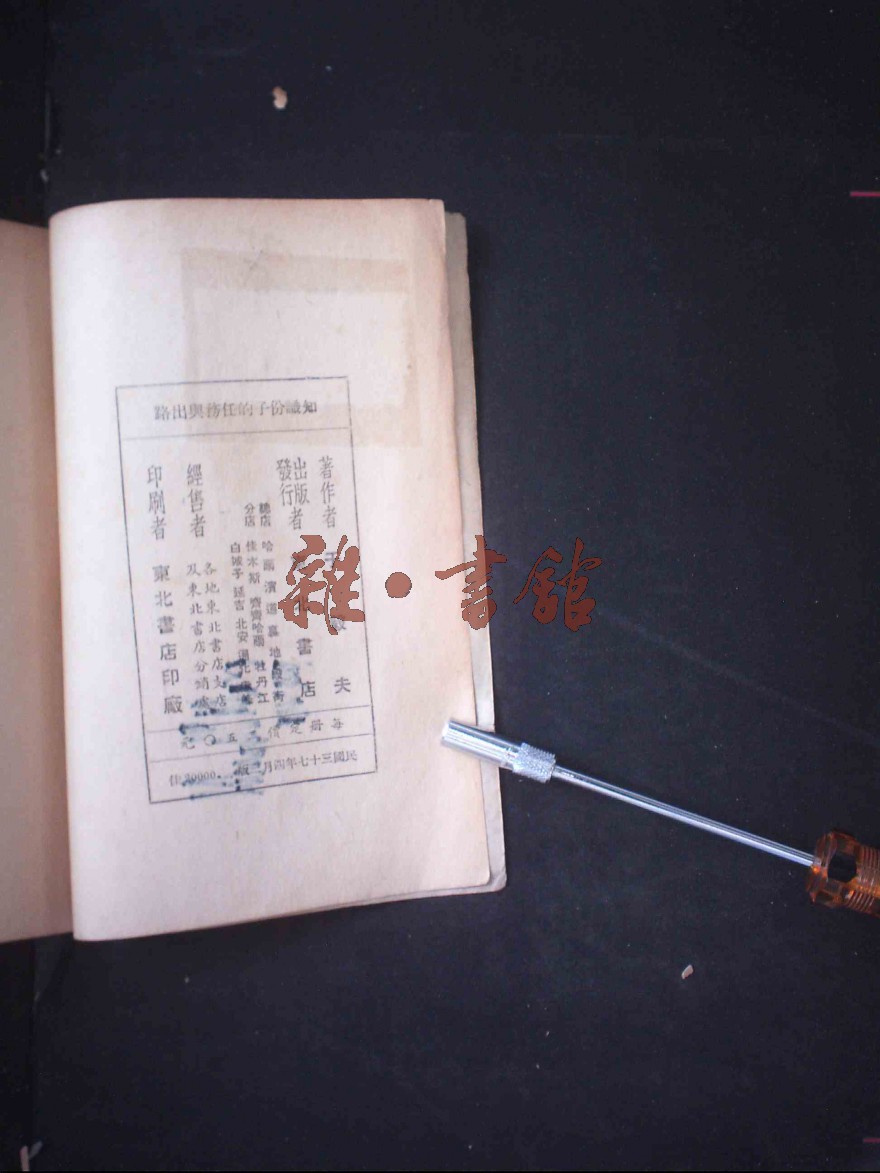 知識份子的任務與出路
著作者 夫
出版者
發行
書店
總店 哈爾濱道裏地段街
分店 佳木斯 齊齊哈爾 牡丹江
白城子 延吉 北安
經售者
各地東北書店支店
及東北書店分銷處
印刷者 東北書店印廠
每冊定價 五〇元
民國三十七年四月 版
雜·書館